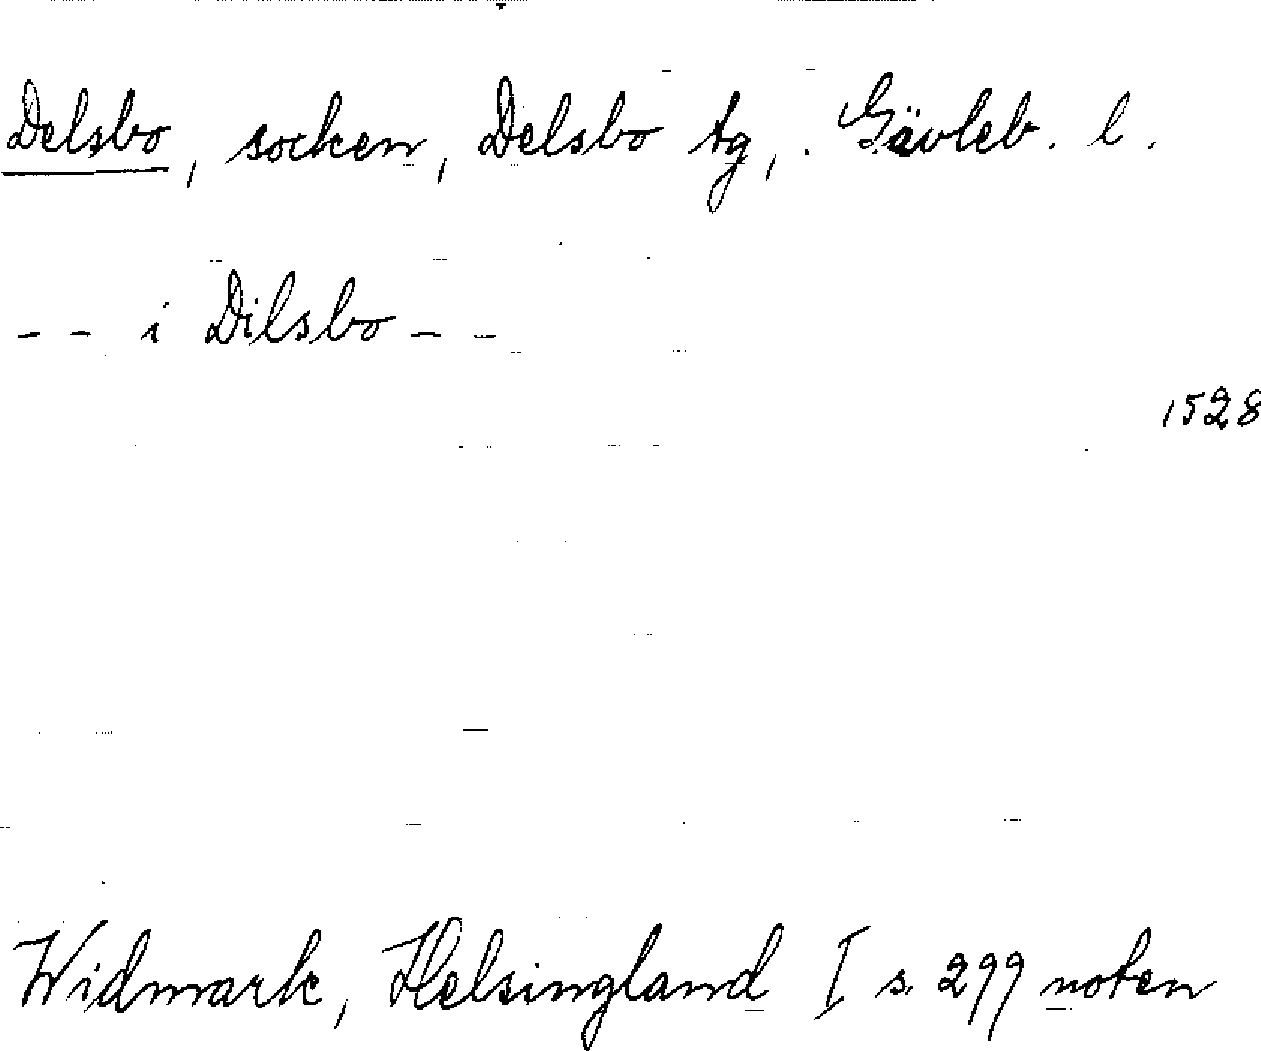 Delsbo, socken, Delsbo tg, Gävleb. l.
-- i Dilsbo --
1528
Widmark, Helsingland I s. 299 noten